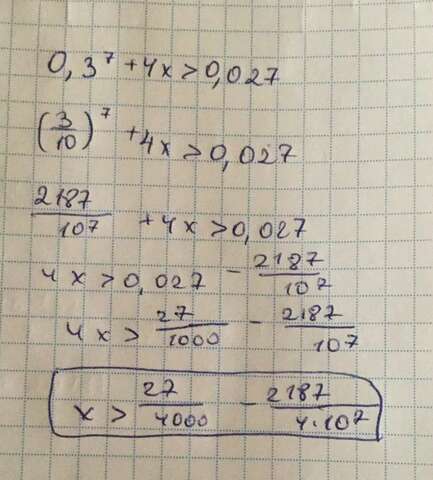 0,3⁷ + 4x > 0,027
(3/10)⁷ + 4x > 0,027
2187/10⁷ + 4x > 0,027
4x > 0,027 - 2187/10⁷
4x > 27/1000 - 2187/10⁷
x > 27/4000 - 2187/4·10⁷